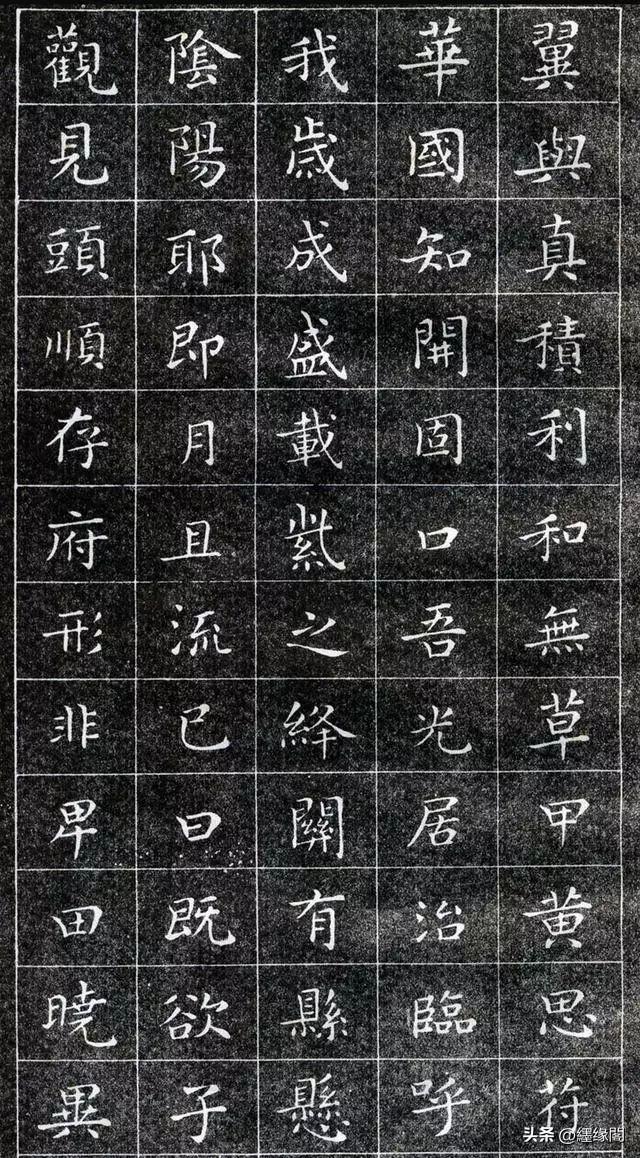 翼與真積利和無草甲黄思苻
華國知開固口吾光居治臨呼
我歲成盛載紫之絳關有縣懸
陰陽耶即月且流已曰既欲子
觀見頭順存府形非卑田曉
头条 @纒缘閣